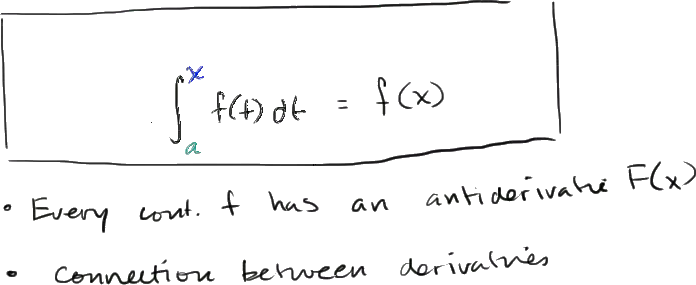 ∫ₐˣ f(t) dt = f(x)
• Every cont. f has an antiderivative F(x)
• Connection between derivatives